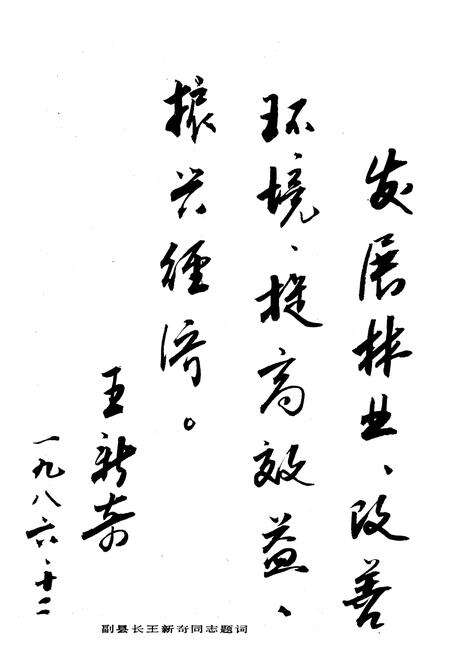 发展林业、改善
环境、提高效益、
振兴经济。
王新奇
一九八六.十二
副县长王新奇同志题词